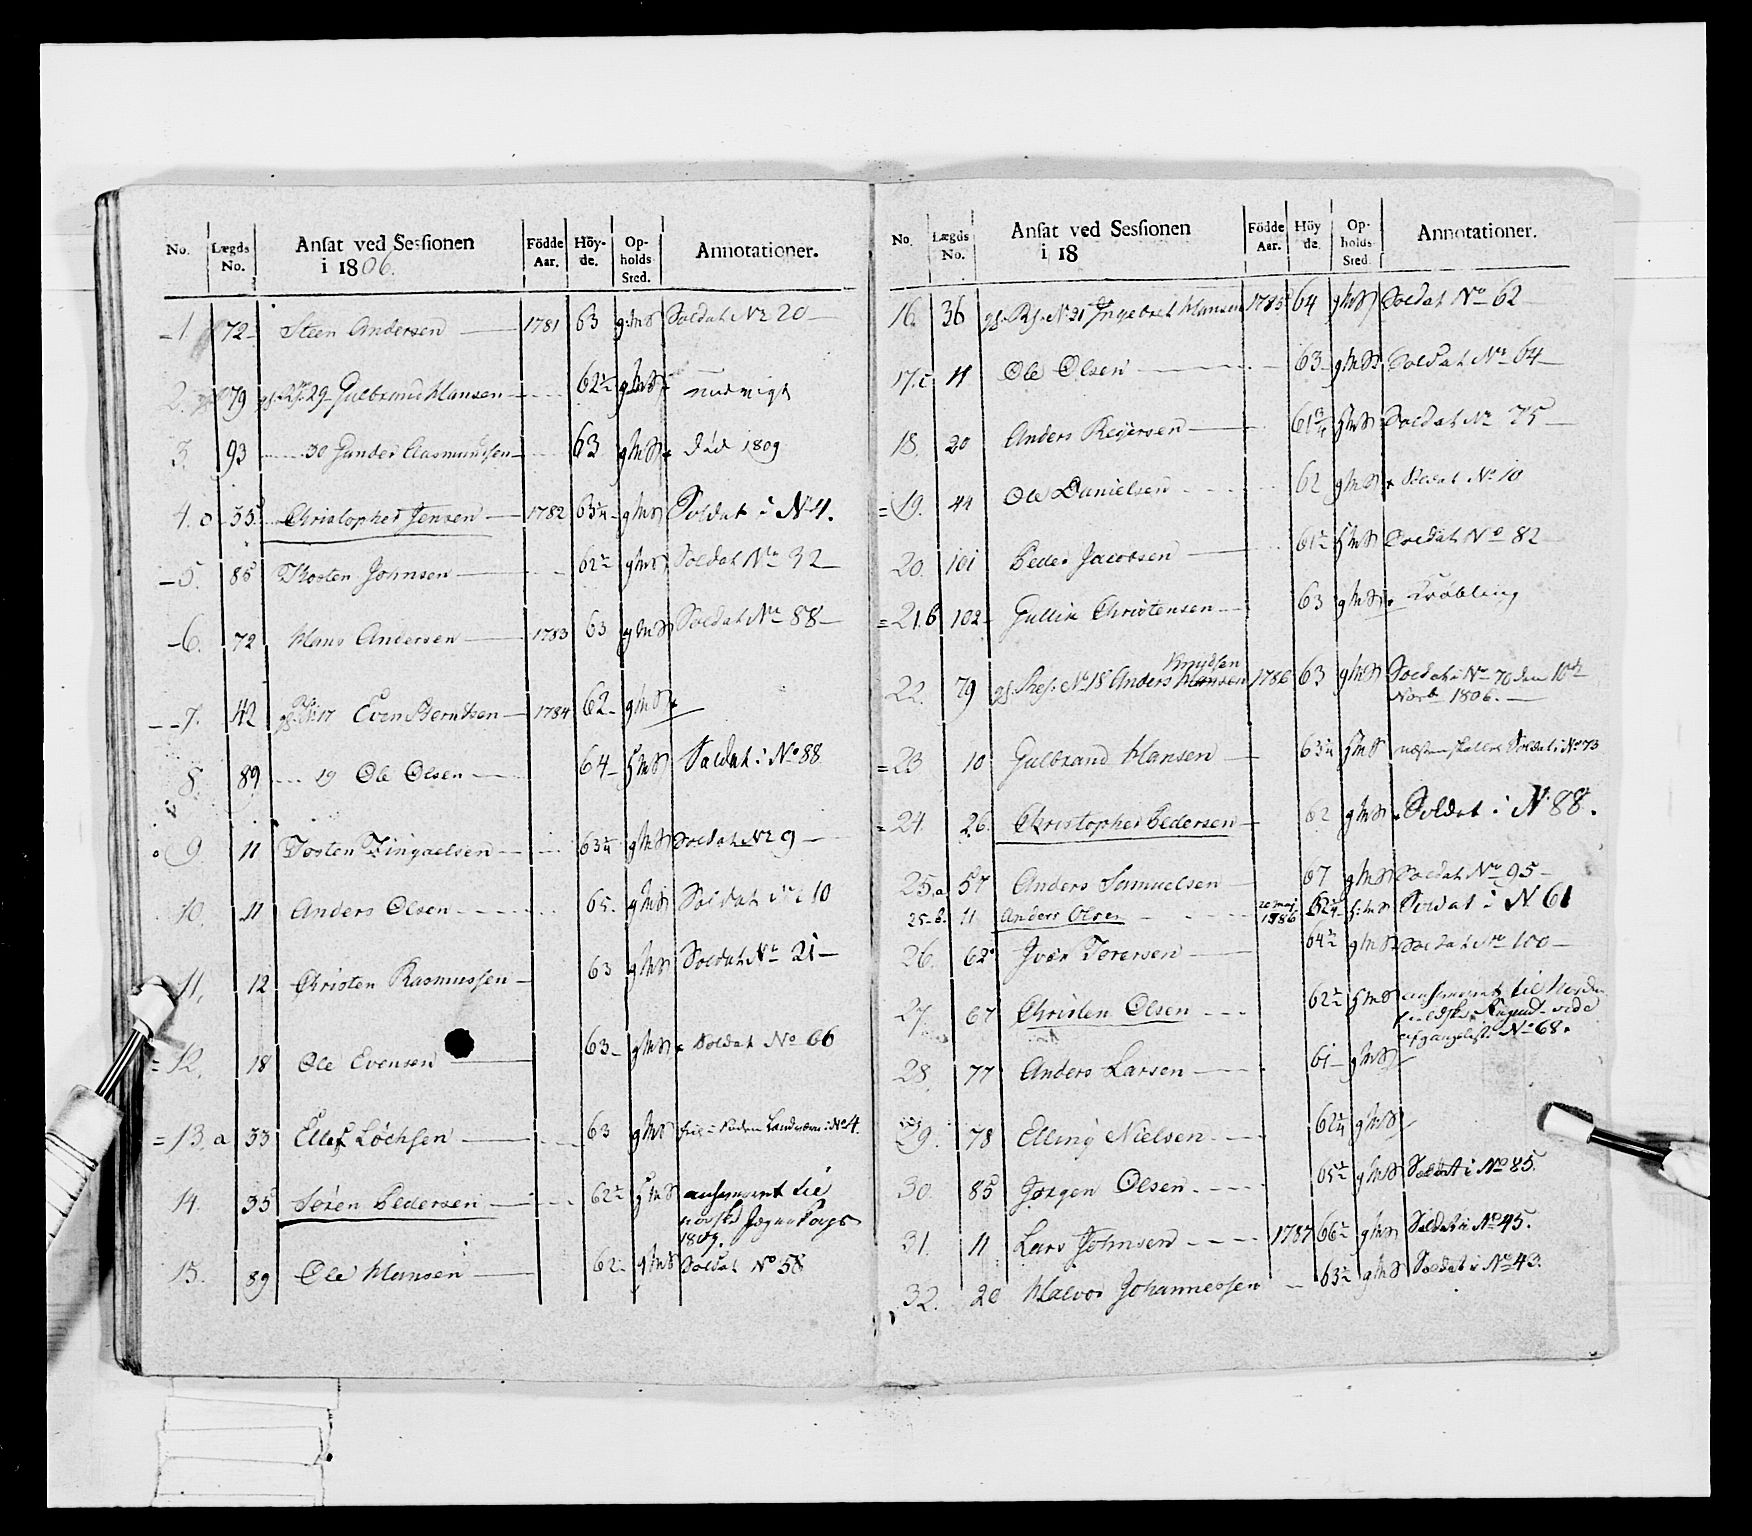 No. Lægds No. Ansat ved Sessionen i 1806. Födde Aar. Höy-de. Op-holds Sted. Annotationer.
1. 72 Steen Andersen 1781 63 ghms Soldat No 20
2. 79 gl. Rs. 29 Gulbrand Hansen 62½ ghms
3. 93 30 Gunder Aasmundsen 63 ghms død 1809
4. 55 Christopher Jensen 1782 63¼ ghms Soldat i No 4.
5. 85 Thosten Johnsen 62½ ghms Soldat No 32
6. 72 Hans Andersen 1783 63 ghms Soldat No 88
7. 42 17 Even Berntsen 1784 62 ghms
8. 89 19 Ole Olsen 64 ghms Soldat i No 88
9 11 Tosten 63¼ ghms Soldat No 9
10. 11 Anders Olsen 65. ghms Soldat No 10
11. 12 Christen Rasmussen 63 ghms Soldat No 21
12. 18 Ole Evensen 63 ghms Soldat No 66
13. a 33 Ellef Löchsen 63 ghms Landværn i No 4.
14. 35 Sören Pedersen 62½ ghms ansumeret til
norske Jæger Corps
1809.
15. 89 Ole Hansen 62 ghms Soldat No 58
No. Lægds No. Ansat ved Sessionen i 18 Födde Aar. Höy de. Op-holds Sted. Annotationer.
16. 36 gl. Rs. No 21 Ingebret Hansen 1785 64 ghms Soldat No 62
17. c 11 Ole Olsen 63 ghms Soldat No 64
18. 20 Anders Reyersen 61¾ ghms Soldat No 75
19. 44 Ole Danielsen 62 ghms Soldat No 10
20. 101 Peder Jacobsen 61½ ghms Soldat No 82
21. b 102 Gullik Christensen 63 ghms Krøbling
Knudsen
22. 79 gl. Res. No 18 Anders Hansen 1786 63 ghms Soldat i No 70 den 10de
Novb 1806.
23 10 Gulbrand Hansen 63¼ ghms Soldat i No 73
24. 26. Christopher Pedersen 62 ghms Soldat i No 88.
25. a 57 Anders Samuelsen 67 ghms Soldat No 95
25-b. 11 Anders Olsen 20 maj 1786 62¼ ghms Soldat i No 61
26. 62 Iver Torersen 64½ ghms Soldat No 100
27. 67 Christen Olsen 62½ ghms ansumeret til Norden
vide
afgangslist. No 68.
28. 77 Anders Larsen 61 ghms
29. 78 Elling Nielsen 62¼ ghms
30. 85 Jörgen Olsen 65½ ghms Soldat i No 85.
31. 11 Lars Johnsen 1787 66½ ghms Soldat i No 45.
32. 20 Halvor Johannessen 63½ ghms Soldat i No 43.